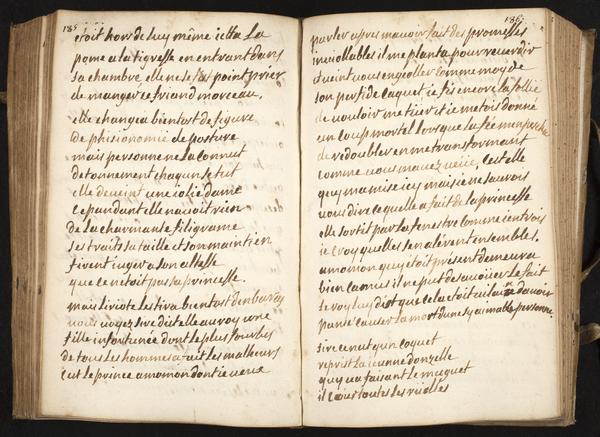 185
etoit hors de luy même ietta la
pome a la tigresse en entrant dans
sa chambre elle ne se fit point prier
de manger ce friand morceau.
elle changea bientost de figure
de phisionomie de posture
mais personne ne la connut
detonnement chaqun se tut
elle deueint une iolie dame
cependant elle nauoit rien
de la charmante filigrame
ses traits sa taille et son maintien
firent iuger a son altesse
que ce netoit pas sa princesse.
mais liriote les tira bientost denbaras
uous uoyez sire dit elle au roy une
fille infortunée dont le plus fourbe
de tous les hommes a fait les malheurs
cest le prince amomon dont ie ueux
186
parler apres mauoir fait des promesses
inuiollables il me planta pour reuerdir
et ueint uous engeoller comme moy de
son perfide caquet ie fis encore la follie
de uouloir me tuer et ie metois donné
un coup mortel lorsque la fée
de redoubler en me transformant
comme uous mauez ueüe, cest elle
quy ma mise icy mais ie ne saurois
uous dire ce quelle a fait de la princesse
elle sortit par la fenestre comme ientrois
ie croy quelles sen alerent ensembles.
amomon quy etoit présent demeura
bien camus il ne put desauoüer le fait
le roy luy dist que cela étoit uilain dauoir
pansé causer la mort dune sy aimable personne.
sire cenest qun coquet
reprist la ieunne donzelle
quy ua faisant le muguet
il cour toutes les ruelles